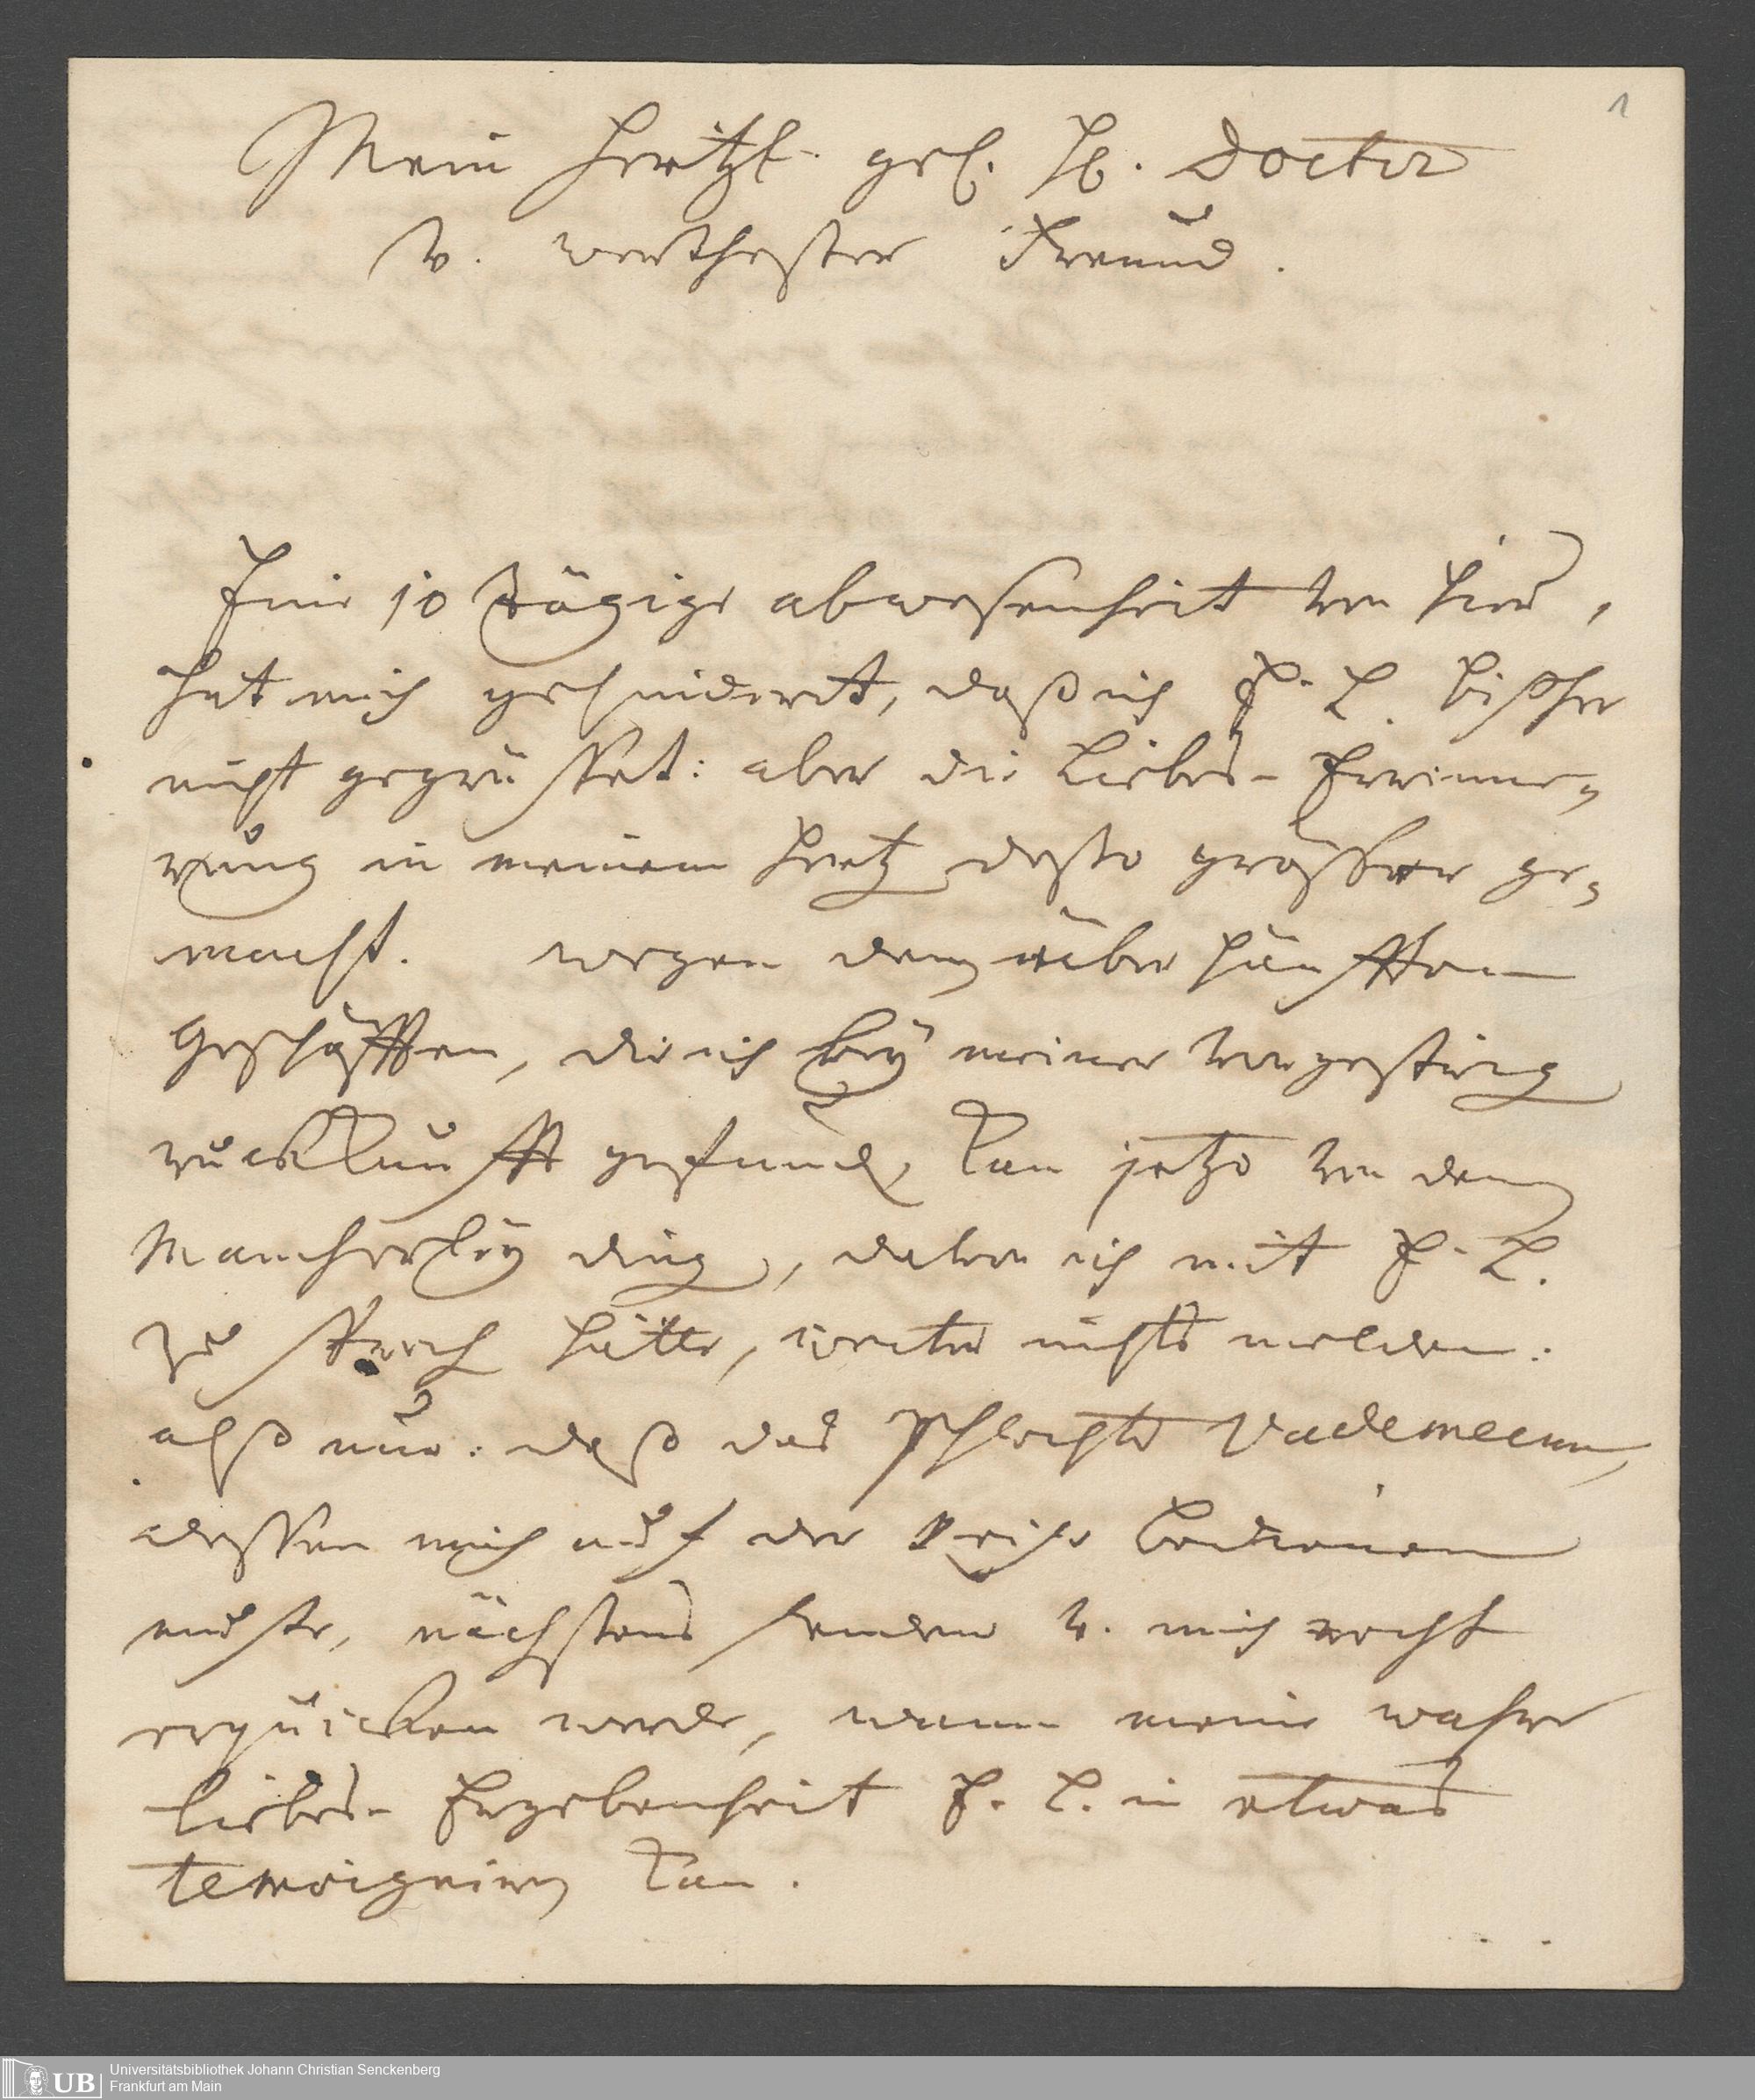 1
Mein hertzl. gel. H. Doctor
u. werthester Freund.
Eine 10 tägige abwesenheit von hier,
hat mich gehindert, daß ich E. L. bißher
nicht gegrüsset: aber die Liebes-Erinne-
rung in meinem Hertz desto grösser ge-
macht. wegen den überhäufften
Geschäfften, die ich bey meiner vorgestrig
ruckkunfft gefunden, kan jetzo von den
Mancherley ding, davon ich mit E. L.
zu sprech hätte, weiter nichts melden:
alß nur: daß das schlechte Vademecum,
dessen mich auf der Reise bedienen
muste, nächstens senden u. mich recht
erquicken werde, wann meine wahre
Liebes-Ergebenheit E. L. in etwas
temoigniren kan.
UB
Universitätsbibliothek Johann Christian Senckenberg
Frankfurt am Main